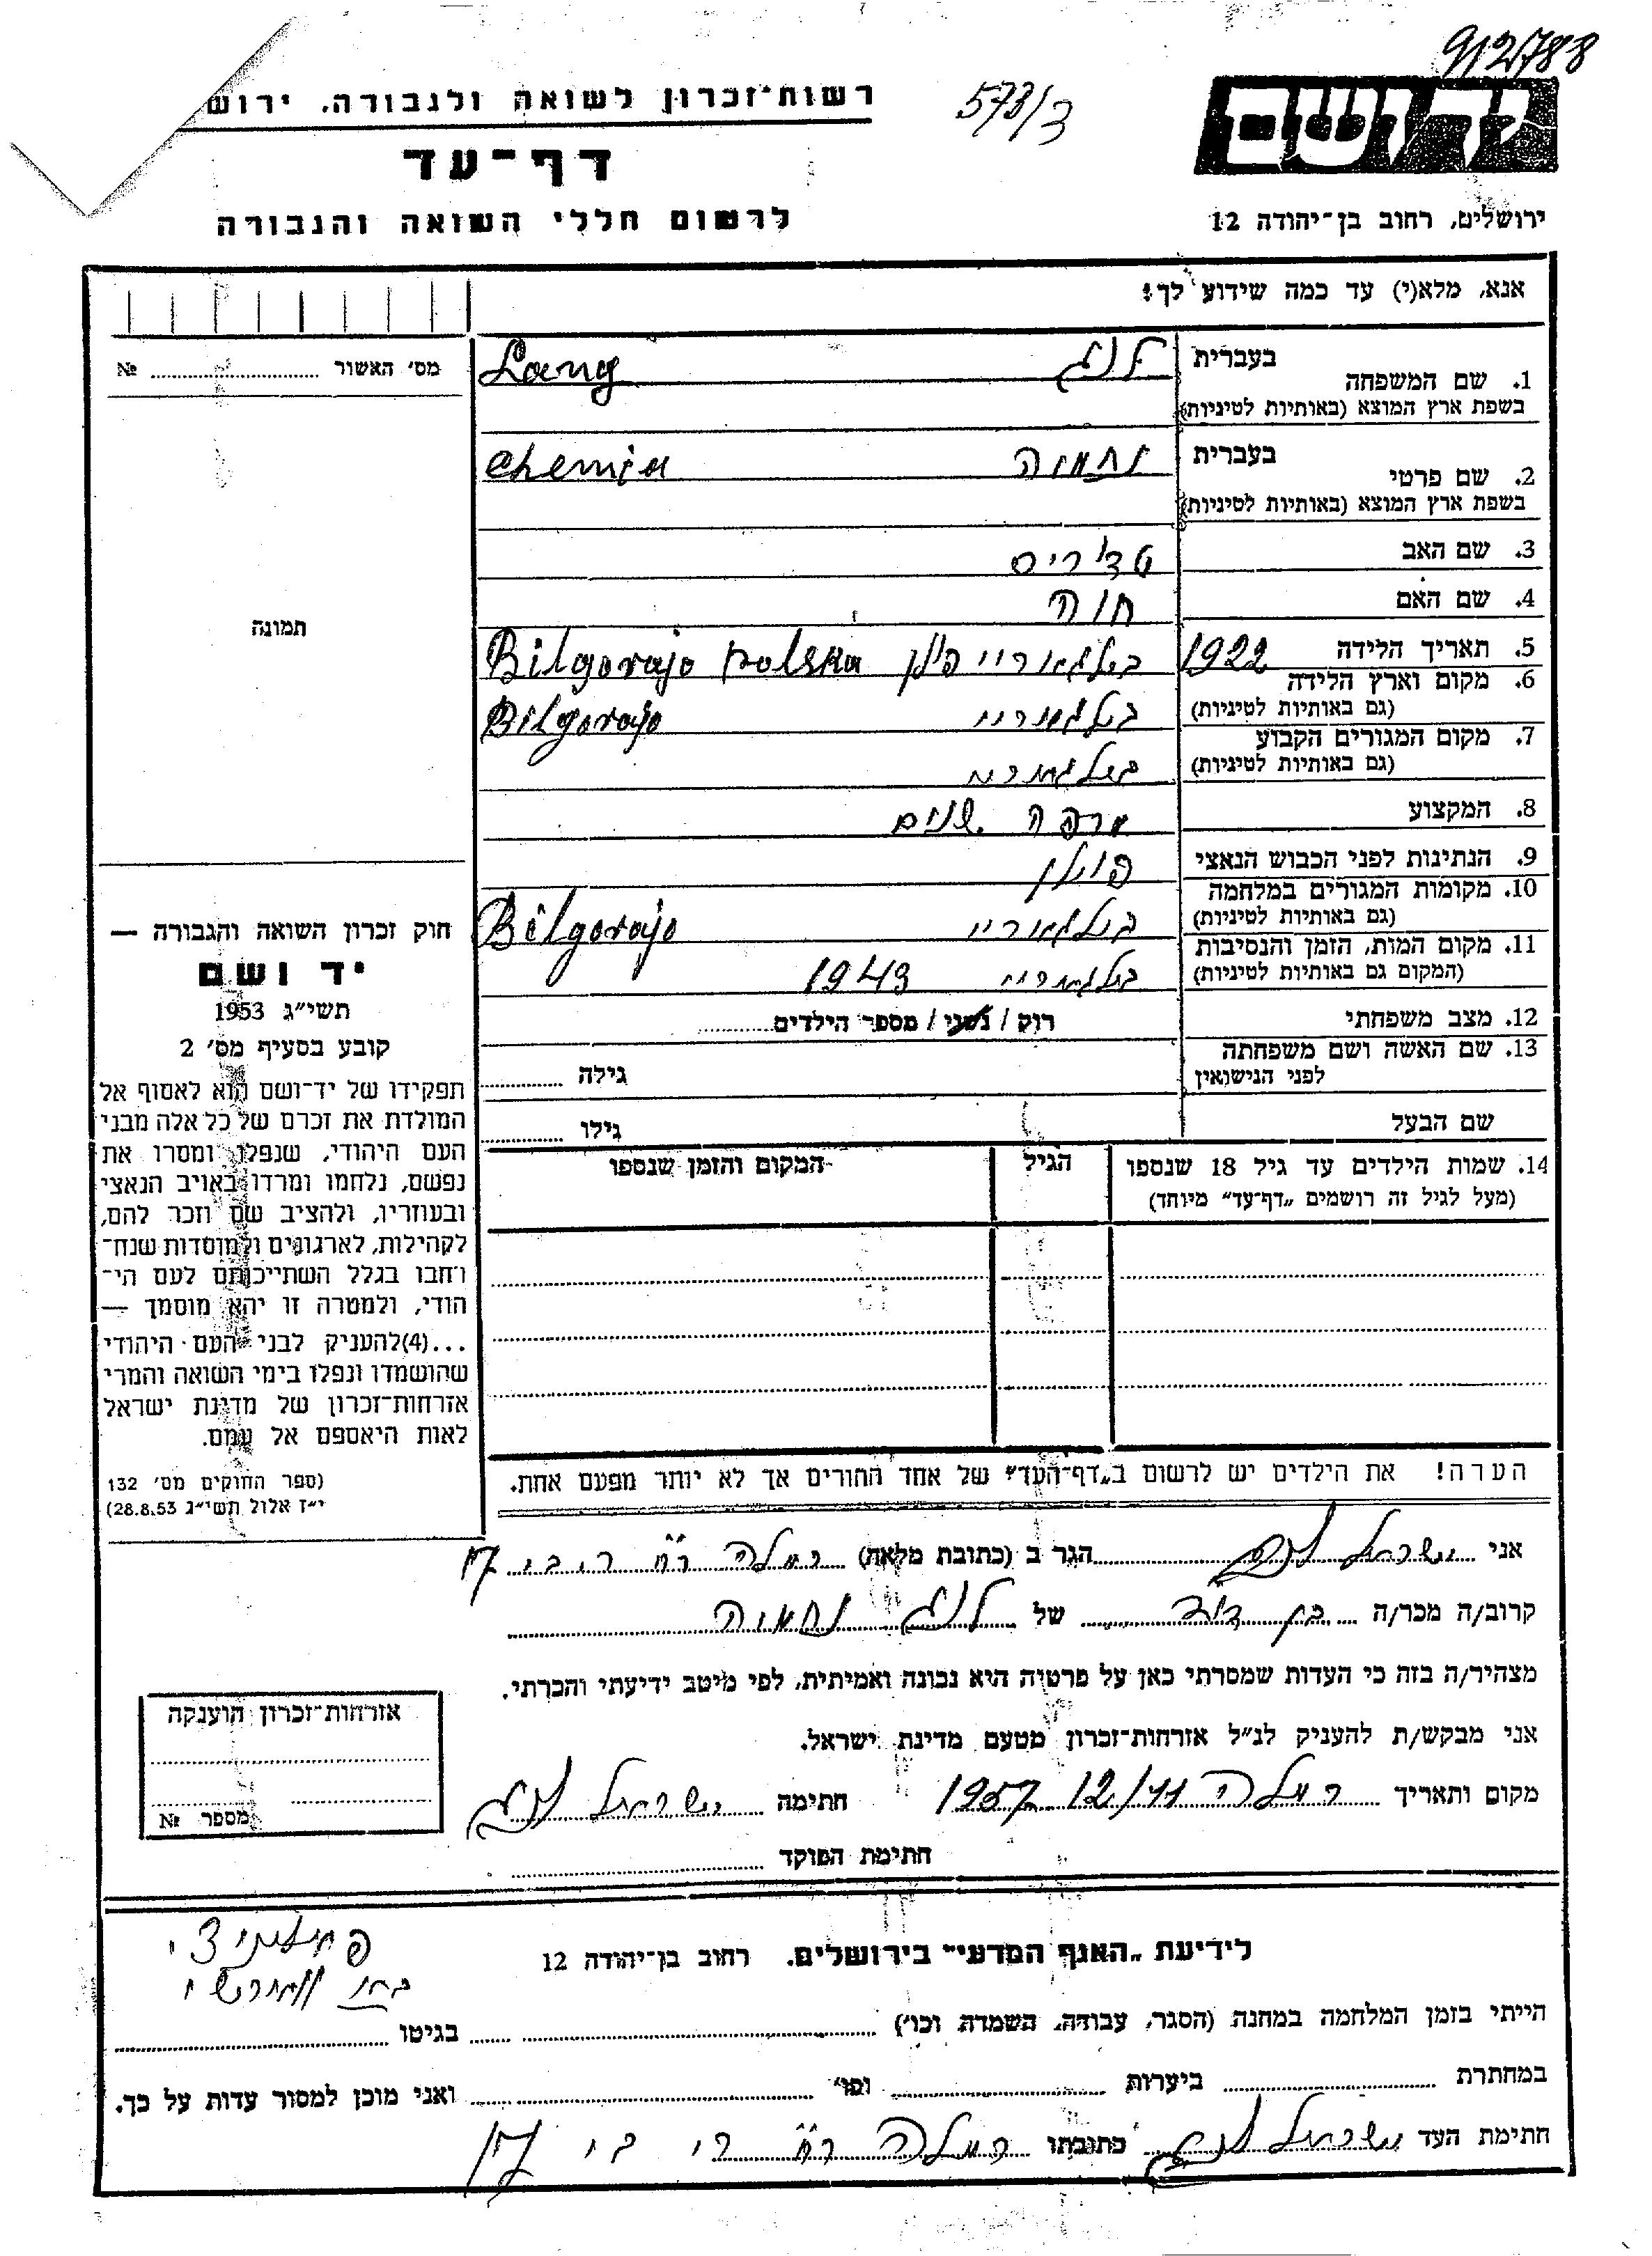 912788
573/3
יד ושם
רשות־זכרון לשואה ולגבורה. ירוש
דף־עד
לרשום חללי השואה והגבורה
ירושלים, רחוב בן־יהודה 12
אנא, מלא(י) עד כמה שידוע לך!
בעברית לנג Lang
1. שם המשפחה
בשפת ארץ המוצא (באותיות לטיניות)
בעברית נחמיה Chemia
2. שם פרטי
בשפת ארץ המוצא (באותיות לטיניות)
3. שם האב
4. שם האם חוה
5. תאריך הלידה 1922
6. מקום וארץ הלידה בילגאריי פולן Bilgorajo polska
(גם באותיות לטיניות)
7. מקום המגורים הקבוע בילגאריי Bilgorajo
(גם באותיות לטיניות) בילגאריי
8. המקצוע מרפה שנים
9. הנתינות לפני הכבוש הנאצי פולן
10. מקומות המגורים במלחמה בילגאריי Bilgorajo
(גם באותיות לטיניות)
11. מקום המות, הזמן והנסיבות בילגאריי 1943
(המקום גם באותיות לטיניות)
12. מצב משפחתי רוק / נשוי / מספר הילדים
13. שם האשה ושם משפחתה גילה
לפני הנישואין
שם הבעל גילו
14. שמות הילדים עד גיל 18 שנספו הגיל המקום והזמן שנספו
(מעל לגיל זה רושמים „דף־עד" מיוחד)
הערה! את הילדים יש לרשום ב„דף־העד" של אחד ההורים אך לא יותר מפעם אחת.
מס׳ האשור №
תמונה
חוק זכרון השואה והגבורה —
יד ושם
תשי״ג 1953
קובע בסעיף מס׳ 2
תפקידו של יד־ושם הוא לאסוף אל
המולדת את זכרם של כל אלה מבני
העם היהודי, שנפלו ומסרו את
נפשם, נלחמו ומרדו באויב הנאצי
ובעוזריו, ולהציב שם וזכר להם,
לקהילות, לארגונים ולמוסדות שנח־
רבו בגלל השתייכותם לעם הי־
הודי, ולמטרה זו יהא מוסמך —
...(4)להעניק לבני העם היהודי
שהושמדו ונפלו בימי השואה והמרי
אזרחות־זכרון של מדינת ישראל
לאות היאספם אל עמם.
(ספר החוקים מס׳ 132
י״ז אלול תשי״ג 28.8.53)
אני ישראל לנג הגר ב (כתובת מלאה) רמלה
קרוב/ה מכר/ה בן דוד של לנג נחמיה
מצהיר/ה בזה כי העדות שמסרתי כאן על פרטיה היא נכונה ואמיתית, לפי מיטב ידיעתי והכרתי.
אני מבקש/ת להעניק לנ״ל אזרחות־זכרון מטעם מדינת ישראל.
מקום ותאריך רמלה 12/11 1957 חתימה ישראל לנג
חתימת הפוקד
אזרחות־זכרון הוענקה
מספר №
לידיעת „האגף המדעי" בירושלים. רחוב בן־יהודה 12
הייתי בזמן המלחמה במחנה (הסגר, עבודה, השמדה וכו׳) בגיטו
במחתרת ביערות וכו׳ ואני מוכן למסור עדות על כך.
חתימת העד ישראל לנג כתובתו רמלה